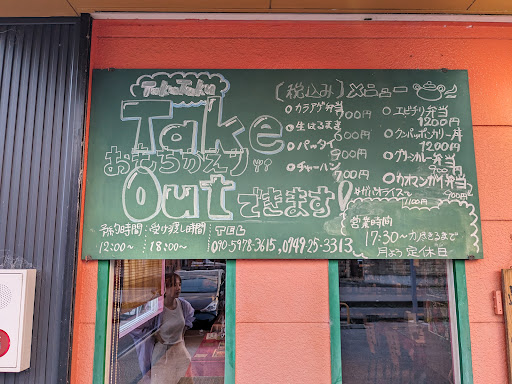 TukuTuku
Take
おもちかえり!!!
Out できます!
予約時間:受け渡し時間: TEL
12:00～ 18:00～ 090-5978-3615, 0749-25-3313
(税込み) メニュー
○カラアゲ弁当 700円
○生はるまき 600円
○パッタイ 900円
○チャーハン 700円
○エビチリ弁当 1200円
○クンパッポンカリー丼 1200円
○グリーンカレー弁当 900円
○カオマンガイ弁当 900円
ガパオライス 1100円
営業時間
17:30～力尽きるまで
月よう定休日